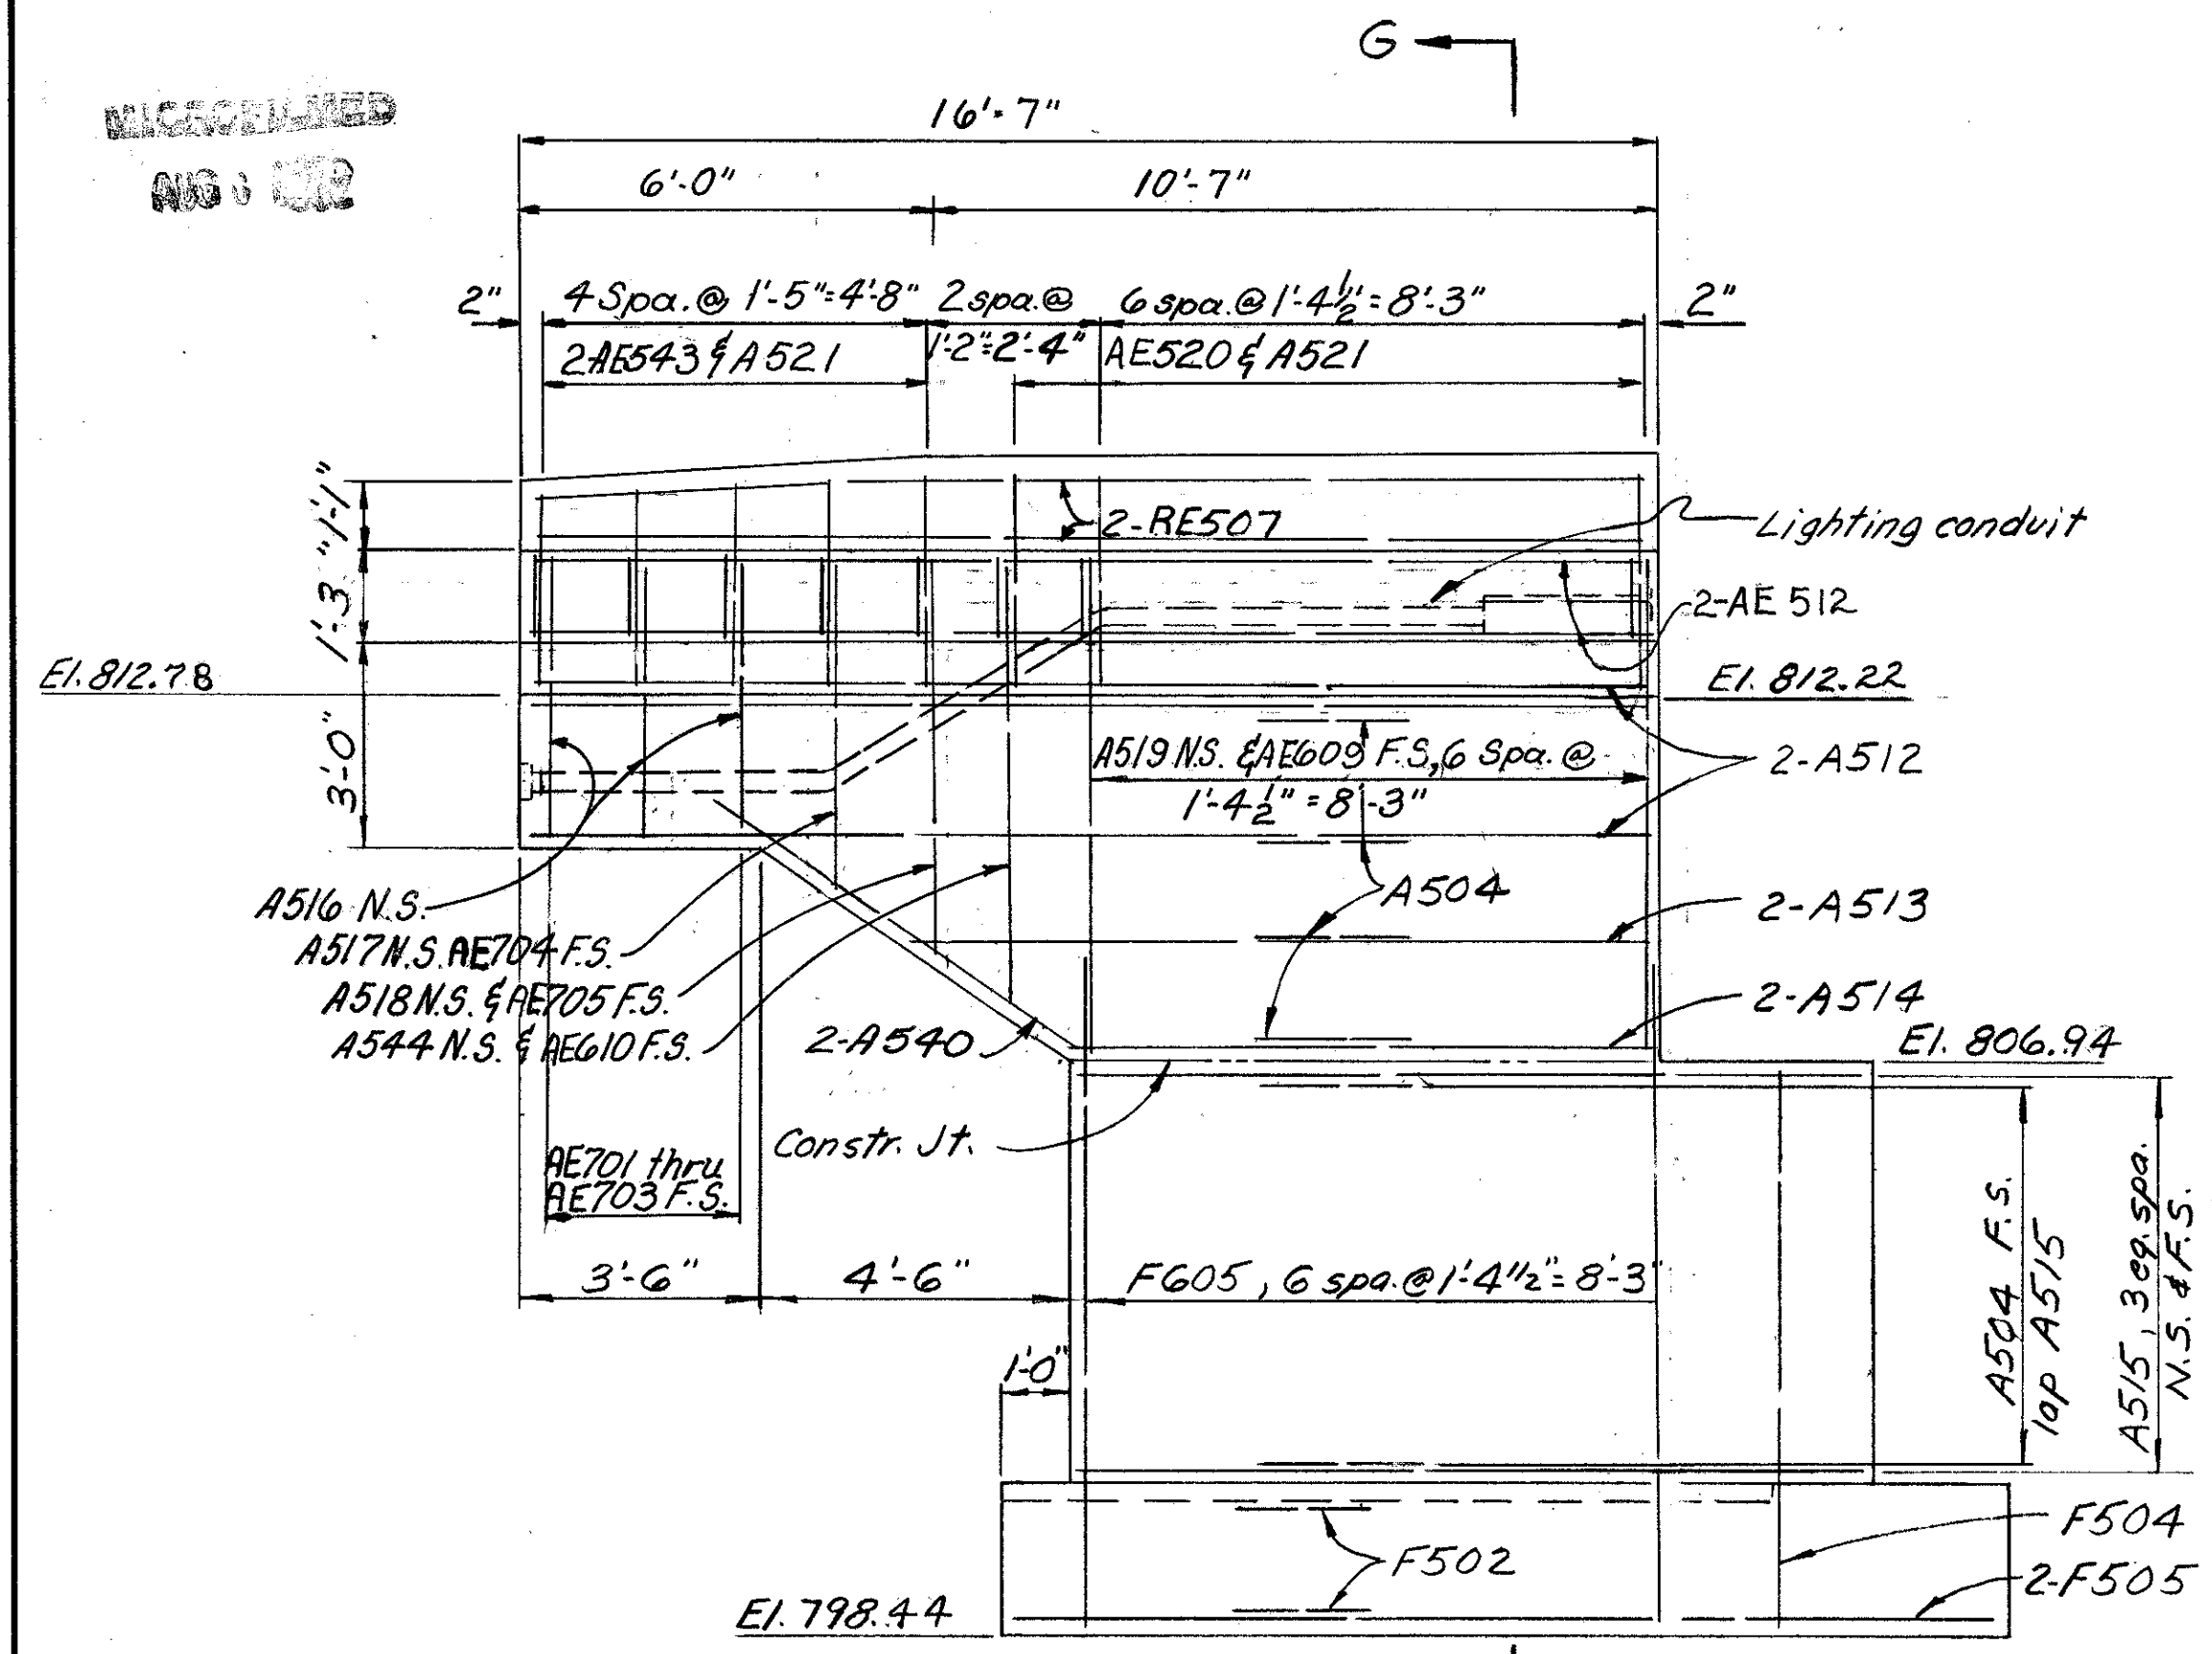 MICROFILMED
AUG
G
16'-7"
6'-0"
10'-7"
2"
4 Spa. @ 1'-5"=4'-8"
2 spa. @
1'-2"=2'-4"
6 spa. @ 1'-4 1/2"=8'-3"
2"
2-AE543 & A521
AE520 & A521
1'-1"
1'-3"
3'-0"
2-RE507
Lighting conduit
2-AE 512
El. 812.78
El. 812.22
A519 N.S. & AE609 F.S., 6 Spa. @
1'-4 1/2" = 8'-3"
2-A512
A504
2-A513
A516 N.S.
A517 N.S. AE704 F.S.
A518 N.S. & AE705 F.S.
A544 N.S. & AE610 F.S.
2-A540
2-A514
El. 806.94
Constr. Jt.
AE701 thru
AE703 F.S.
3'-6"
4'-6"
F605, 6 spa. @ 1'-4 1/2"= 8'-3"
1'-0"
A504 F.S.
lap A515
A515, 3 eq. spa.
N.S. & F.S.
F502
F504
2-F505
El. 798.44